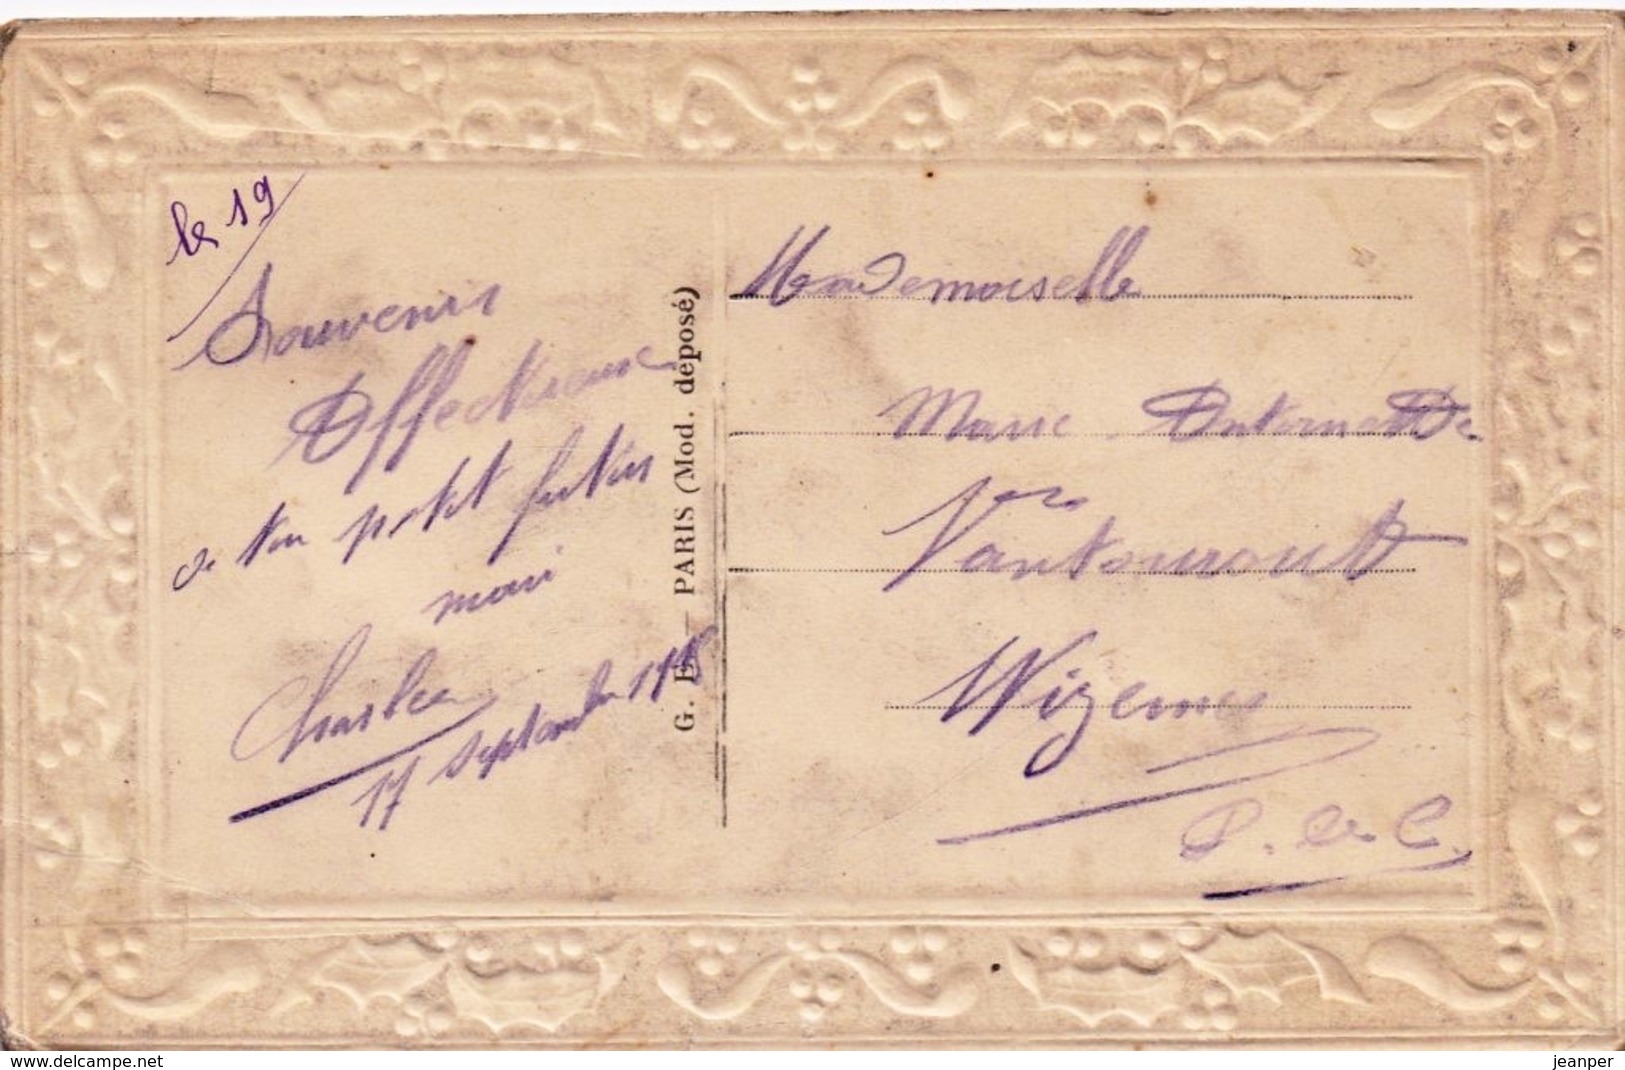 le 19
Souvenirs
Affectueux
de ton petit futur
mari
Charles
17 septembre
G. B. — PARIS (Mod. déposé)
Mademoiselle
Marie Antoinette
Vantouroudt
Wizernes
P. de C.
www.delcampe.net
jeanper